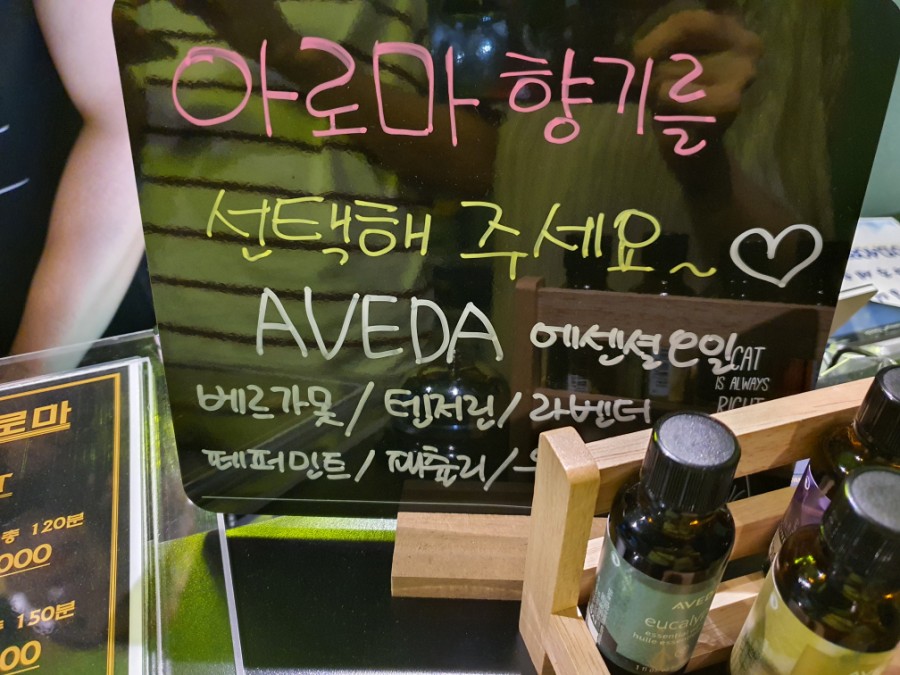 아로마 향기를
선택해 주세요~♡
AVEDA 에센셜 오일
베르가못 / 텐저린 / 라벤더
페퍼민트 / 패츌리 /
CAT
IS ALWAYS
RIGHT
로마
120분
000
150분
00
AVE
eucaly
essential
huile esse
AVED